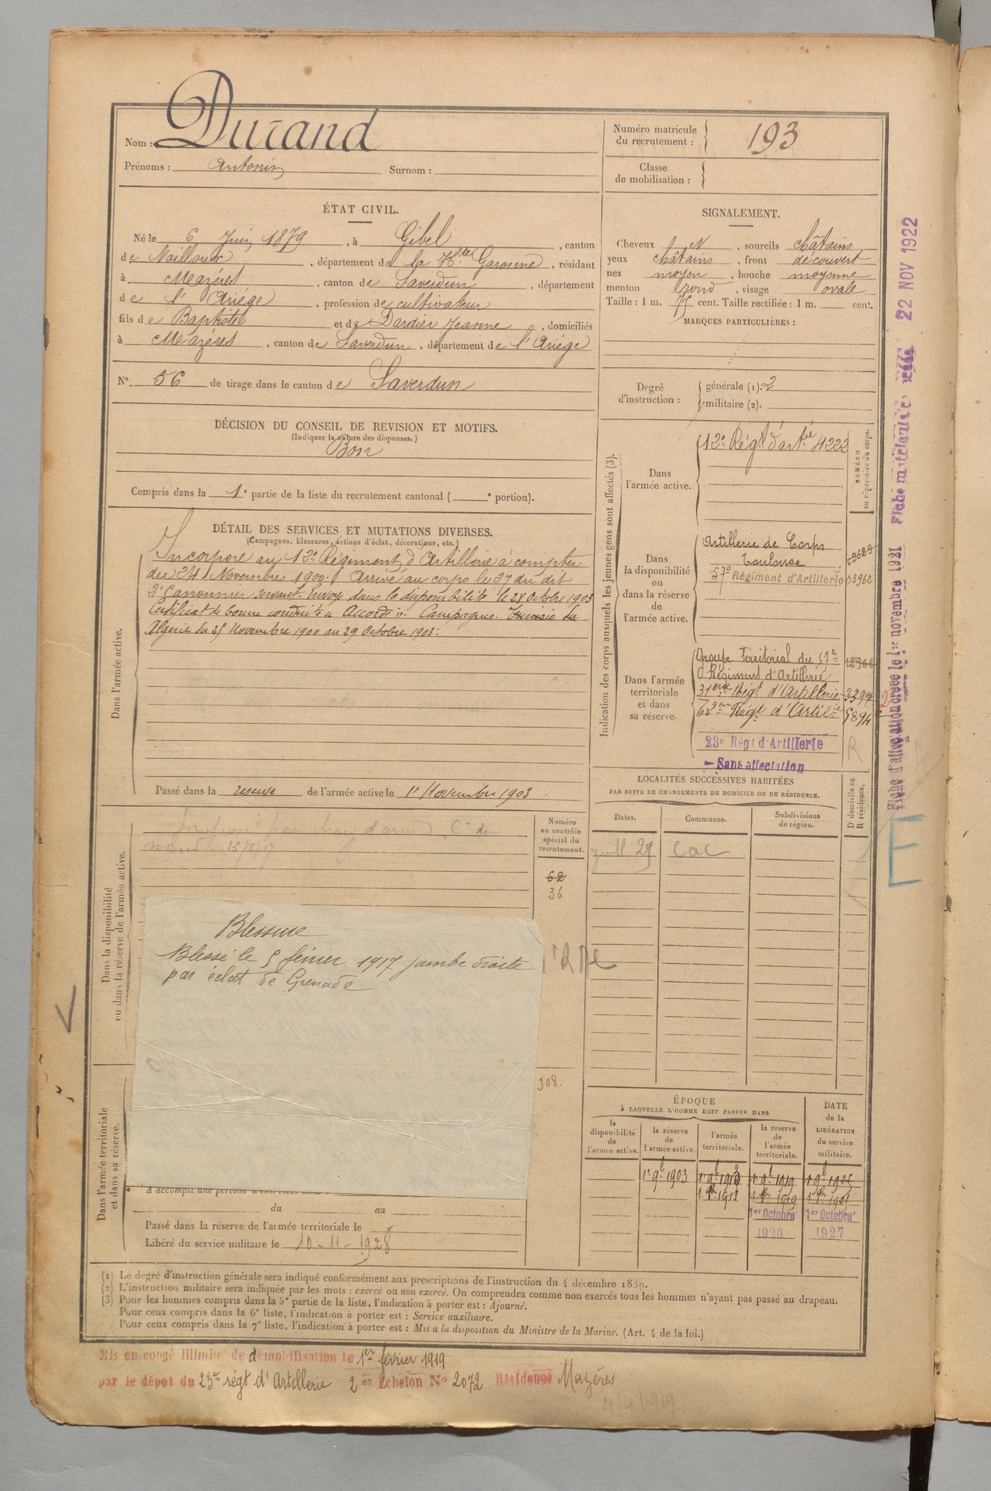 Nom : Durand
Prénoms : Antonin Surnom :
Numéro matricule du recrutement : 193
Classe de mobilisation :
ÉTAT CIVIL.
Né le 6 Juin 1879, à Gibel, canton
de Nailloux, département de la Hte Garonne, résidant
à Mazères, canton de Saverdun, département
de l'Ariège, profession de cultivateur
fils de Baptiste et de Dardier Jeanne, domiciliés
à Mazères, canton de Saverdun, département de l'Ariège
N° 56 de tirage dans le canton de Saverdun
SIGNALEMENT.
Cheveux N, sourcils châtains
yeux châtains, front découvert
nez moyen, bouche moyenne
menton rond, visage ovale
Taille : 1 m. cent. Taille rectifiée : 1 m. cent.
MARQUES PARTICULIÈRES :
Degré d'instruction : générale (1). 2
militaire (2).
DÉCISION DU CONSEIL DE REVISION ET MOTIFS.
(Indiquer la nature des dispenses.)
Bon
Compris dans la 1e partie de la liste du recrutement cantonal ( e portion).
DÉTAIL DES SERVICES ET MUTATIONS DIVERSES.
(Campagnes, blessures, actions d'éclat, décorations, etc.)
Dans l'armée active.
Incorporé au 12e Régiment d'Artillerie à compter
du Novembre 1900. Arrivé au corps le dit
2e Canonnier servant. Envoyé dans la disponibilité le 28 Octobre 1903
Certificat de bonne conduite Accordé. Campagnes.
Algérie du 25 Novembre 1900 au 29 Octobre 1903.
Passé dans la réserve de l'armée active le 1er Novembre 1903.
Indication des corps auxquels les jeunes gens sont affectés (3).
NUMÉRO au répertoire du corps.
Dans l'armée active.
12e Régt d'artie 4222
Dans la disponibilité ou dans la réserve de l'armée active.
Artillerie de Corps
Toulouse
57e Régiment d'Artillerie 03962
Dans l'armée territoriale et dans sa réserve.
Groupe Territorial du 57e
Régiment d'Artillerie
Régt d'Artillerie
Régt d'Artie
23e Régt d'Artillerie
Sans affectation
R
LOCALITÉS SUCCESSIVES HABITÉES
PAR SUITE DE CHANGEMENTS DE DOMICILE OU DE RÉSIDENCE.
Dates. Communes. Subdivisions de région. D domicile ou R résidence.
29 cac
Dans la disponibilité ou dans la réserve de l'armée active.
Numéro au contrôle spécial du recrutement.
62
36
308.
Blessure
Blessé le 5 février 1917 jambe droite
par éclat de Grenade
Dans l'armée territoriale et dans sa réserve.
A accompli une période d'exercices dans
du au
Passé dans la réserve de l'armée territoriale le
Libéré du service militaire le 10-11-1928
ÉPOQUE
À LAQUELLE L'HOMME DOIT PASSER DANS
la disponibilité de l'armée active. la réserve de l'armée active. l'armée territoriale. la réserve de l'armée territoriale. DATE de la LIBÉRATION du service militaire.
1er 9bre 1903
1er Octobre 1er Octobre
1920 1927
(1) Le degré d'instruction générale sera indiqué conformément aux prescriptions de l'instruction du 4 décembre 1889.
(2) L'instruction militaire sera indiquée par les mots : exercé ou non exercé. On comprendra comme non exercés tous les hommes n'ayant pas passé au drapeau.
(3) Pour les hommes compris dans la 5e partie de la liste, l'indication à porter est : Ajourné.
Pour ceux compris dans la 6e liste, l'indication à porter est : Service auxiliaire.
Pour ceux compris dans la 7e liste, l'indication à porter est : Mis à la disposition du Ministre de la Marine. (Art. 4 de la loi.)
Mis en congé illimité de démobilisation le 1er février 1919
par le dépôt du 23me régt d'Artillerie 2e Echelon N° 2072 Résidence Mazères
Fiche d'affectation créée le 1er novembre 1921
22 NOV 1922